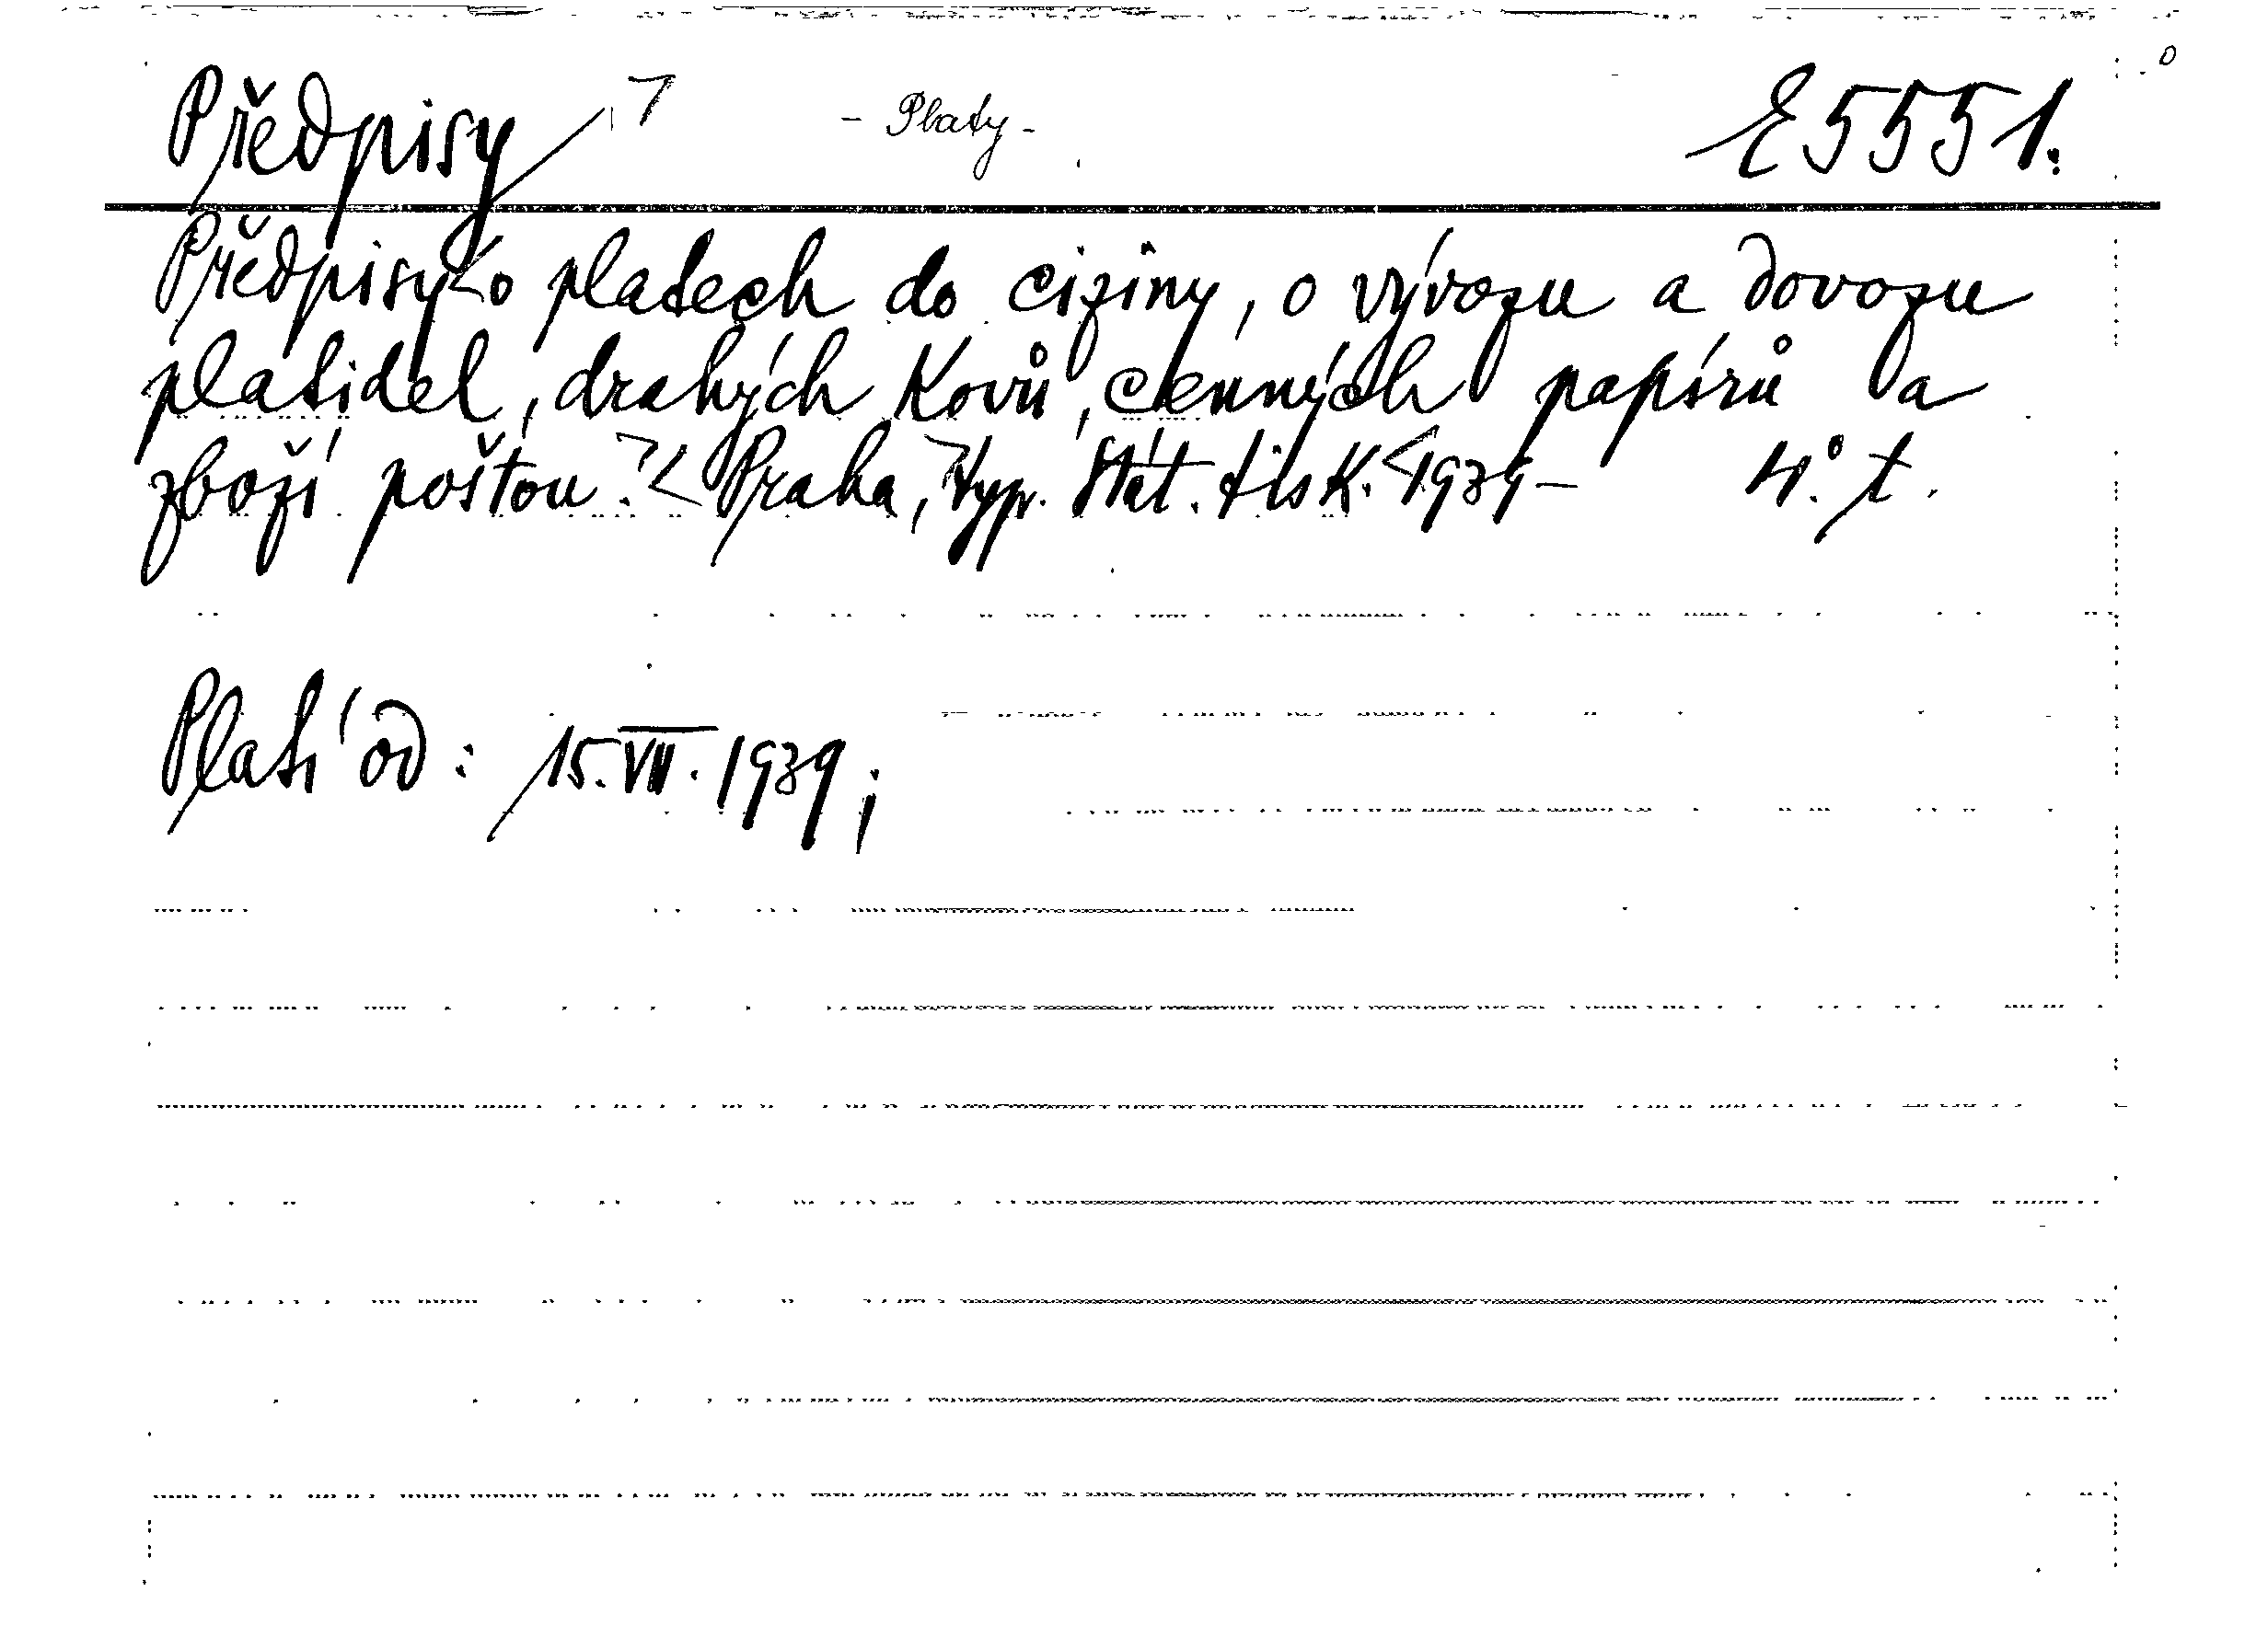 Předpisy - Platy - E 5551.
Předpisy o platech do ciziny, o vývozu a dovozu
platidel, drahých kovů, cenných papírů a
zboží poštou. Praha, Typ. Stát. tisk. 1939 – 4° t.
Platí od: 15. VII. 1939;